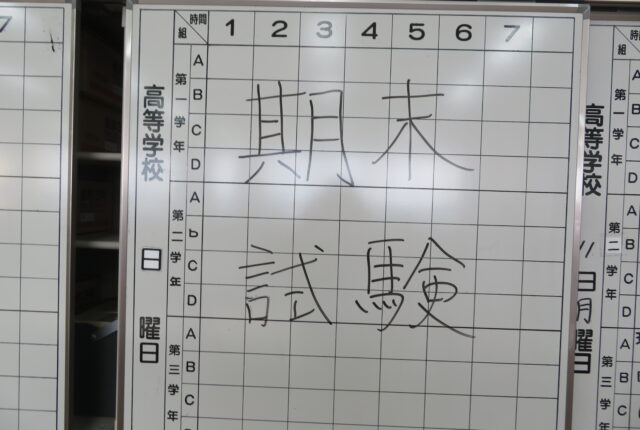 7
時間
組
1 2 3 4 5 6 7
高等学校
日
曜日
第一学年
A
B
C
D
第二学年
A
b
C
D
第三学年
A
B
C
期末
試験
時
組
高等学校
11
日
月
曜日
第一学年
A
B
C
D
第二学年
A
B
C
D
第三学年
A
B
C